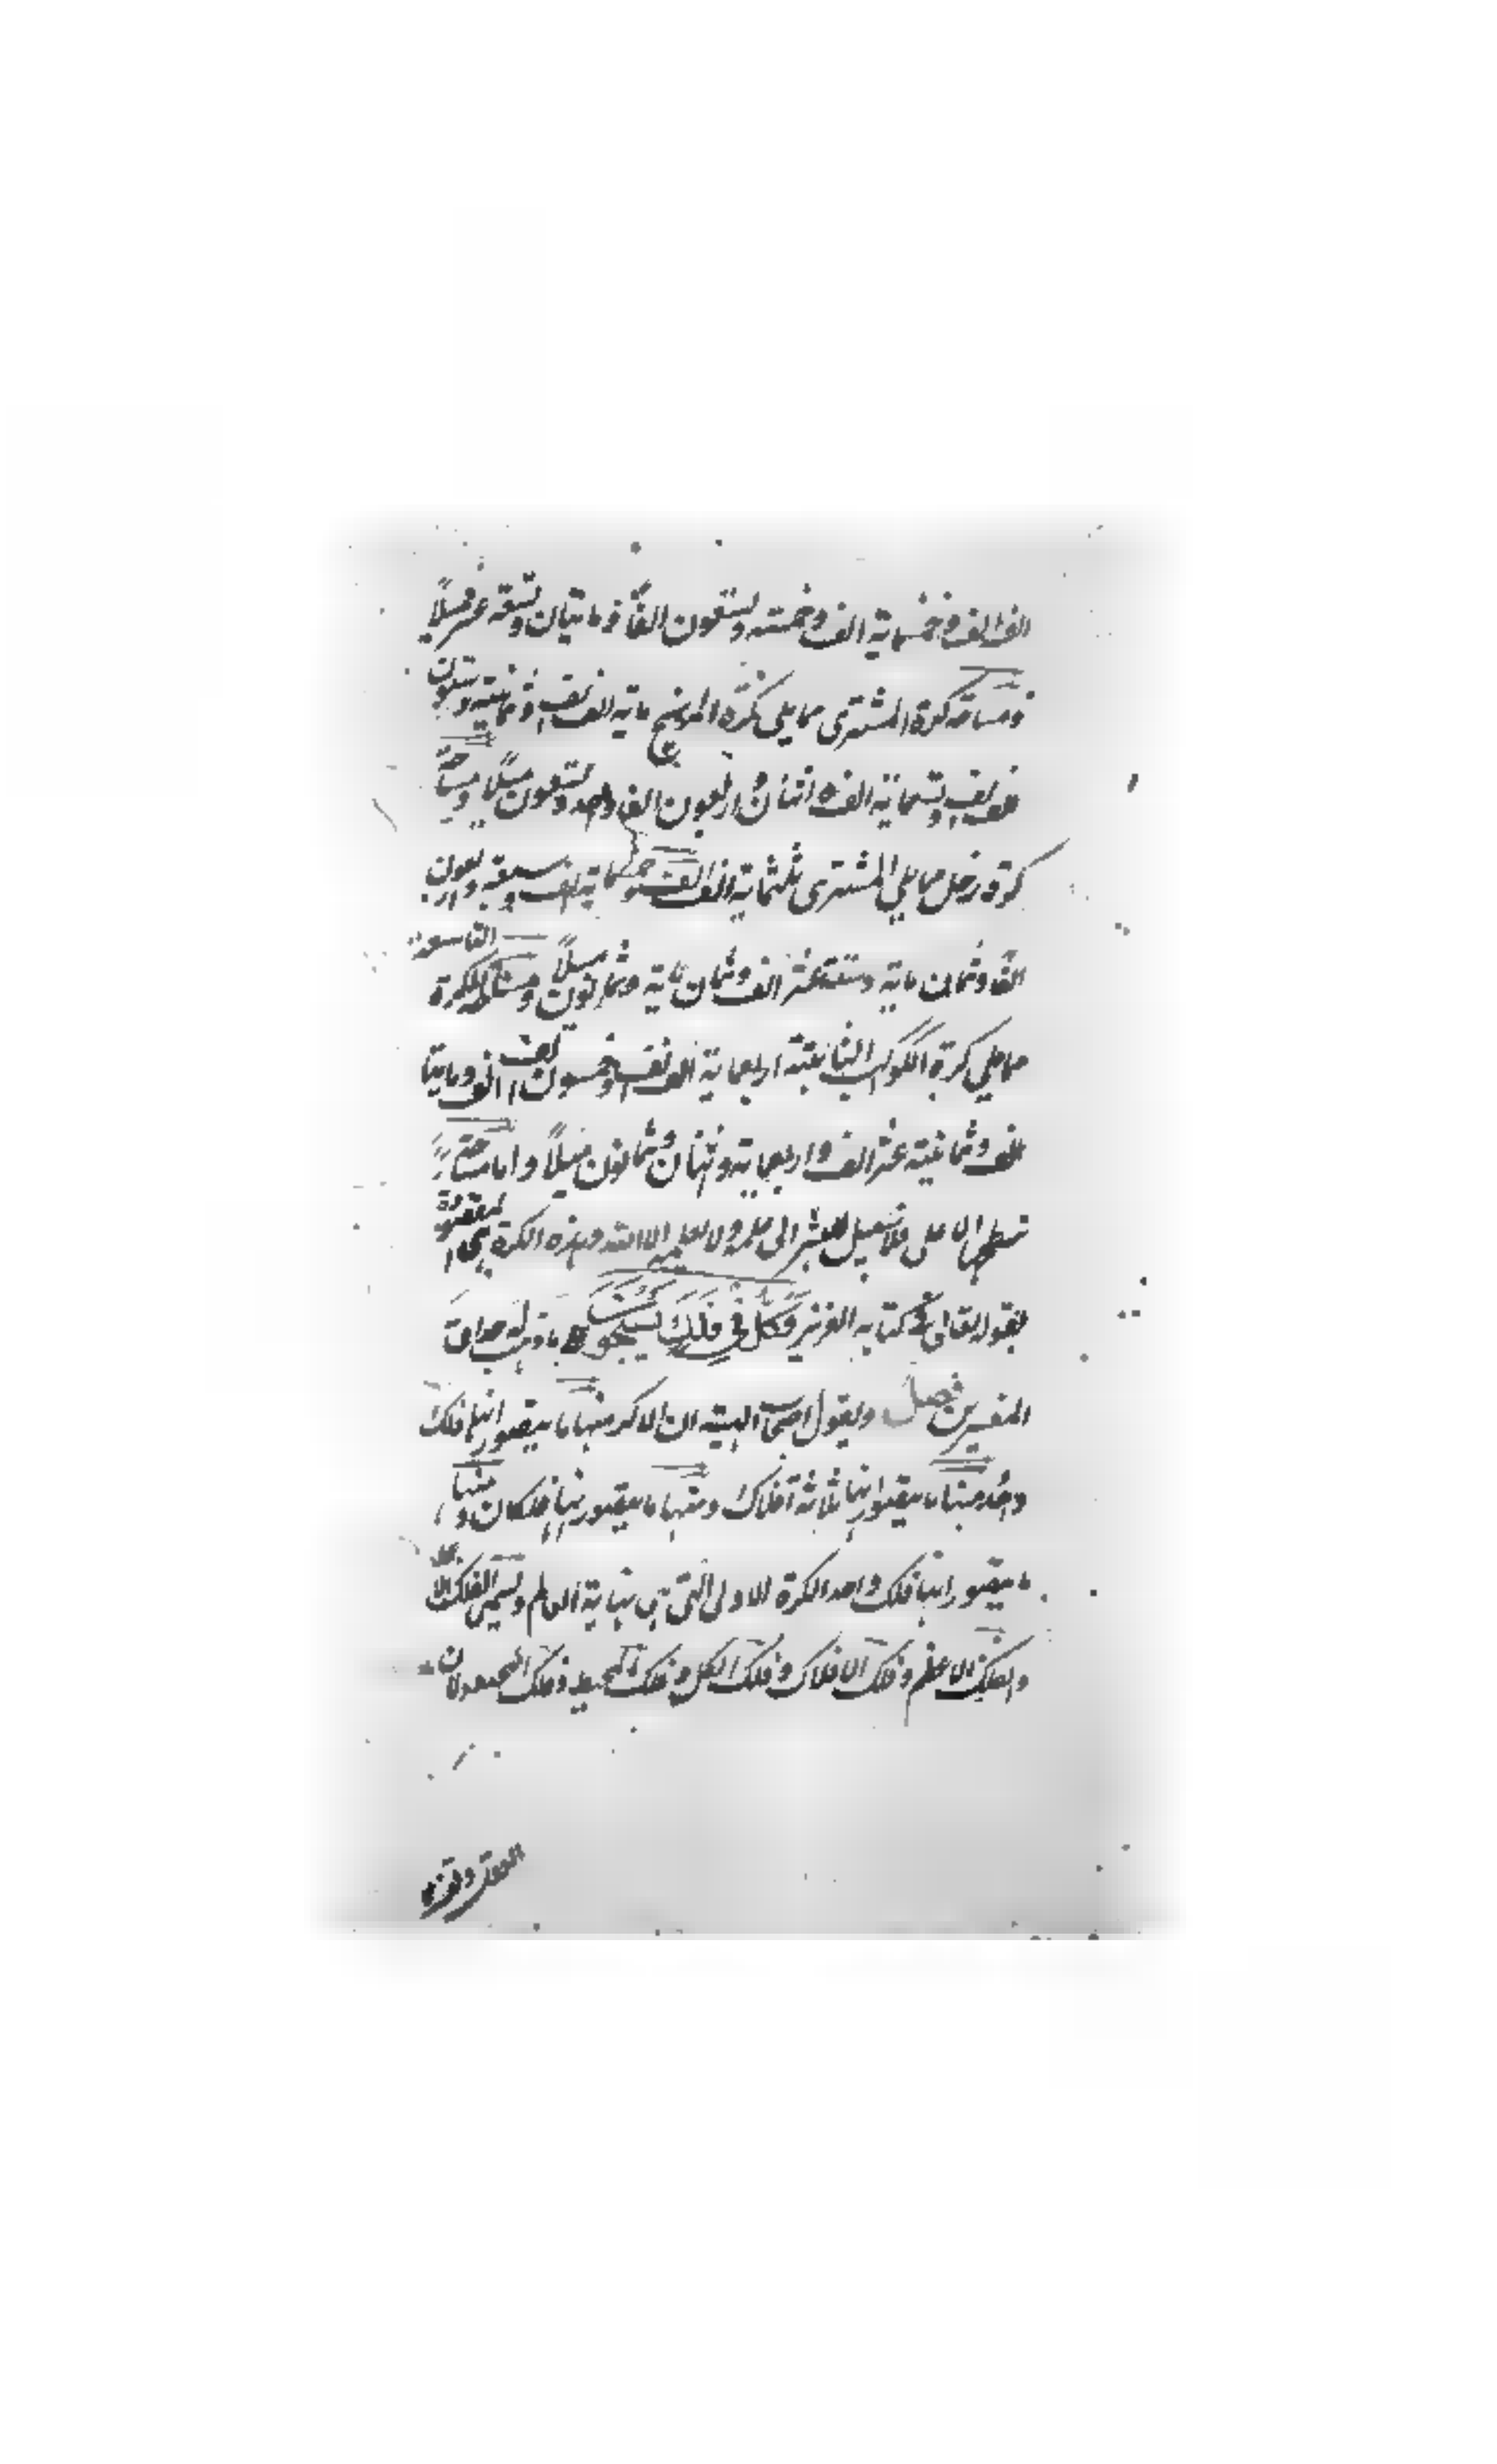 الف الف وخمسماية الف وخمسة وتسعون الفاً ومايتان وتسعة عشر ميلاً
ومساحة كرة المشترى مما يلي كرة المريخ ماية الف الف وثمانية وستون
الف الف وتسعماية الف واثنان واربعون الفا واحد وتسعون ميلاً ومساحة
كرة زحل مما يلي المشترى ثلثماية الف الف وخمسماية الف وسبعة واربعون
الفا وثمان ماية وستة عشر الف وثمان ماية وثمانون ميلاً ومساحة الكرة التاسعة
مما يلي كرة الكواكب الثابتة اربعماية الف الف وخمسون الف الف ومايتا
الف وثمانية عشر الف واربعماية واثنان وثمانون ميلاً واما مساحة
سطحها الاعلى فلا سبيل للبشر الى علمه ولا يعلمه الا الله وهذه الكرة هي المقصودة
بقوله تعالى في كتابه العزيز وَكُلٌّ فِي فَلَكٍ يَسْبَحُونَ ما ذهب له حذاق
المفسرين فصل ويقول اصحاب الهيئة ان الاكر منها ما يتصور انها فلك
واحد ومنها ما يتصور انها ثلاثة افلاك ومنها ما يتصور انها فلكان ومنها
ما يتصور انها فلك واحد الكرة الاولى التي هي نهاية العالم وتسمى الفلك الاعلى
والفلك الاعظم وفلك الافلاك وفلك الكل وفلك المحيط وفلك المعدل لان